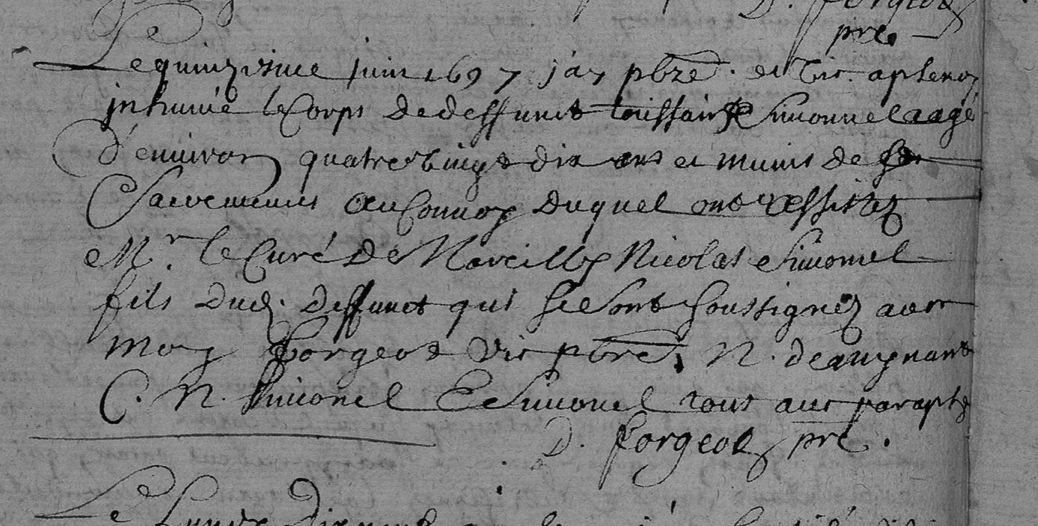 D. forgeot
pre
Le quinziesme juin 1697 j'ay pbre et vic.
inhumé le Corps de deffunct toussainct Simonnel aagé
d'environ quatre vingt dix ans et munis de
Sacrements au Convoy duquel ont assistez
Mr. le Curé de Marcilly Nicolas Simonnel
fils dud. deffunct qui se sont soussignez avec
moy forgeot vic pbre. N.
C. N. Simonel E Simonel tout avec paraphe
D. forgeot pre.
Le